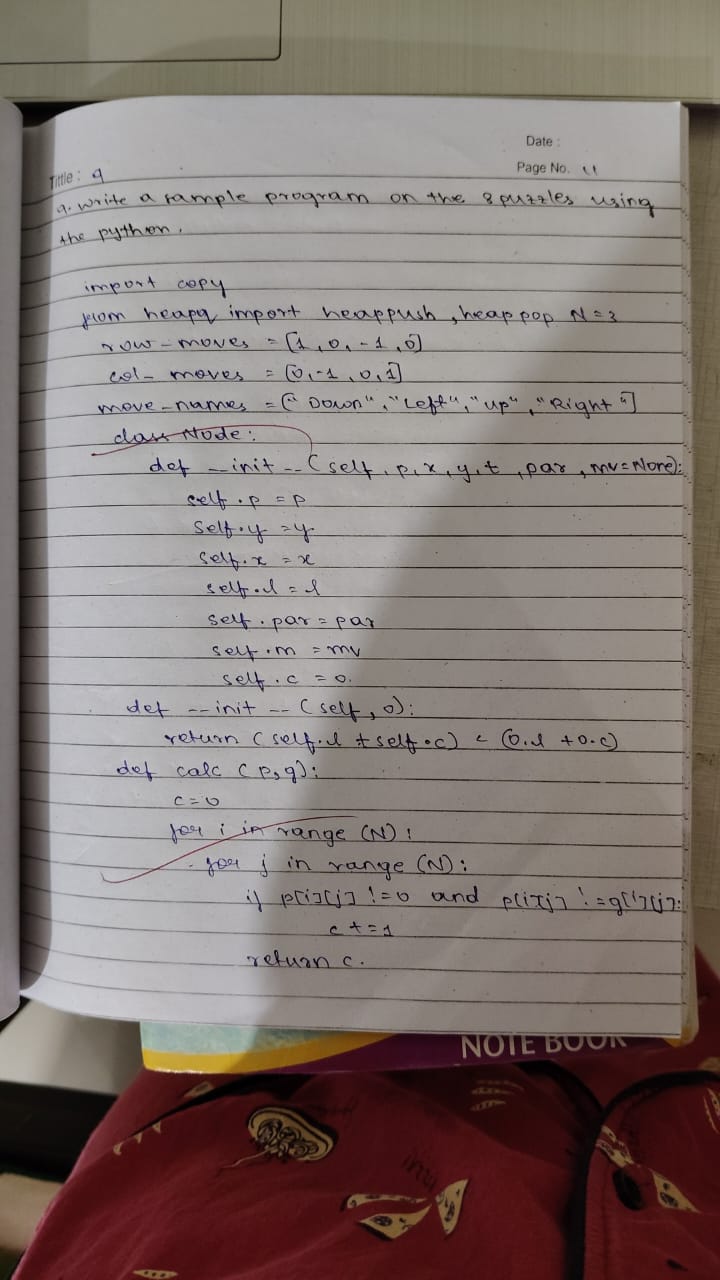 Date :
Page No. 11
Tittle : 9
9. write a sample program on the 8 puzzles using
the python.
import copy
from heapq import heappush, heappop N=3
row-moves = [1, 0, -1, 0]
col- moves = [0, -1, 0, 1]
move-names = [" Down", "Left", "up", "Right"]
class Node:
def _init -- (self, p, x, y, t, par, mv=None):
self.p = p
self.y = y
self.x = x
self.l = l
self.par = par
self.m = mv
self.c = 0.
def --init -- (self, o):
return (self.l + self.c) < (o.l + o.c)
def calc (p,g):
c=0
for i in range (N):
for j in range (N):
if p[i][j] != 0 and p[i][j] != g[i][j]:
c += 1
return c.
NOTE BOOK